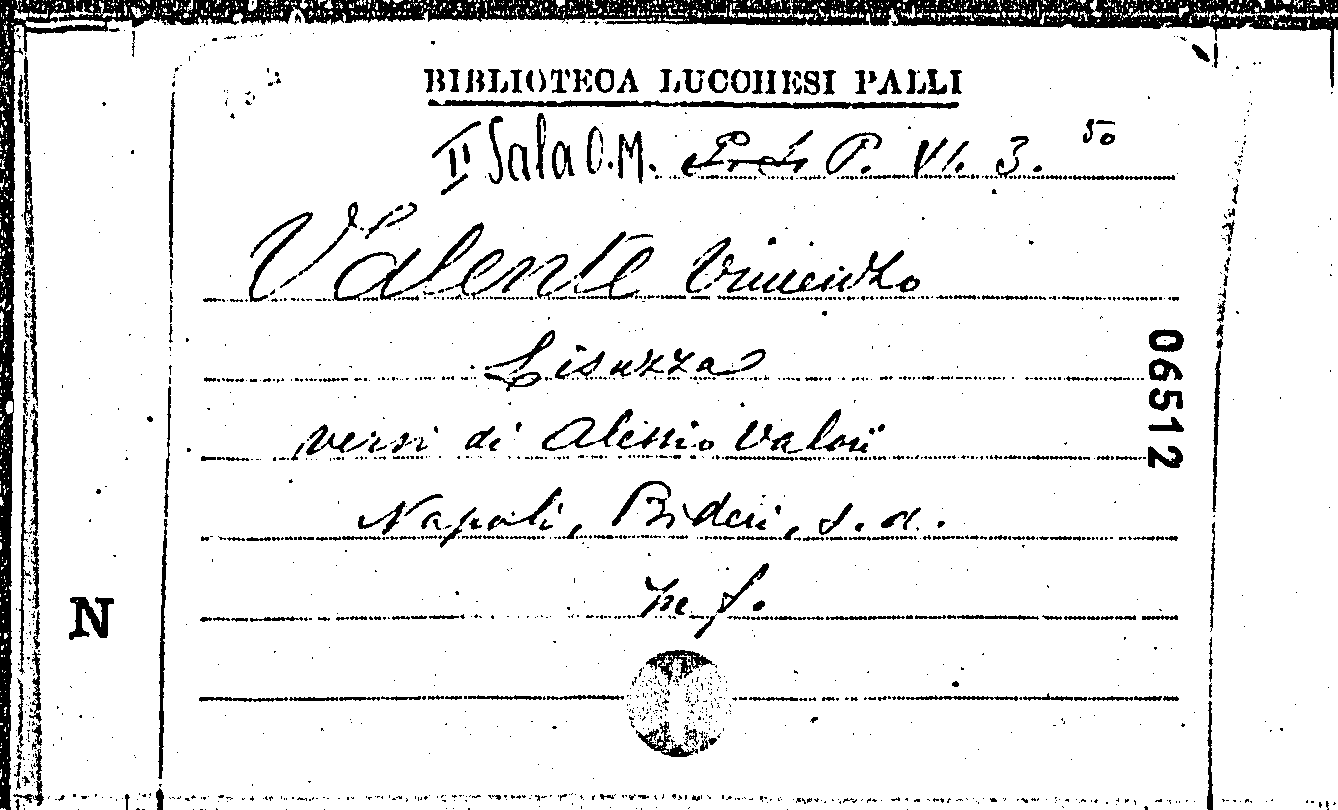 BIBLIOTECA LUCCHESI PALLI
II Sala O.M. P. VI. 3. 50
Valente Vincenzo
Lisuzza
versi di Alessio Valori
Napoli, Bideri, s. d.
pe f.
06512
N